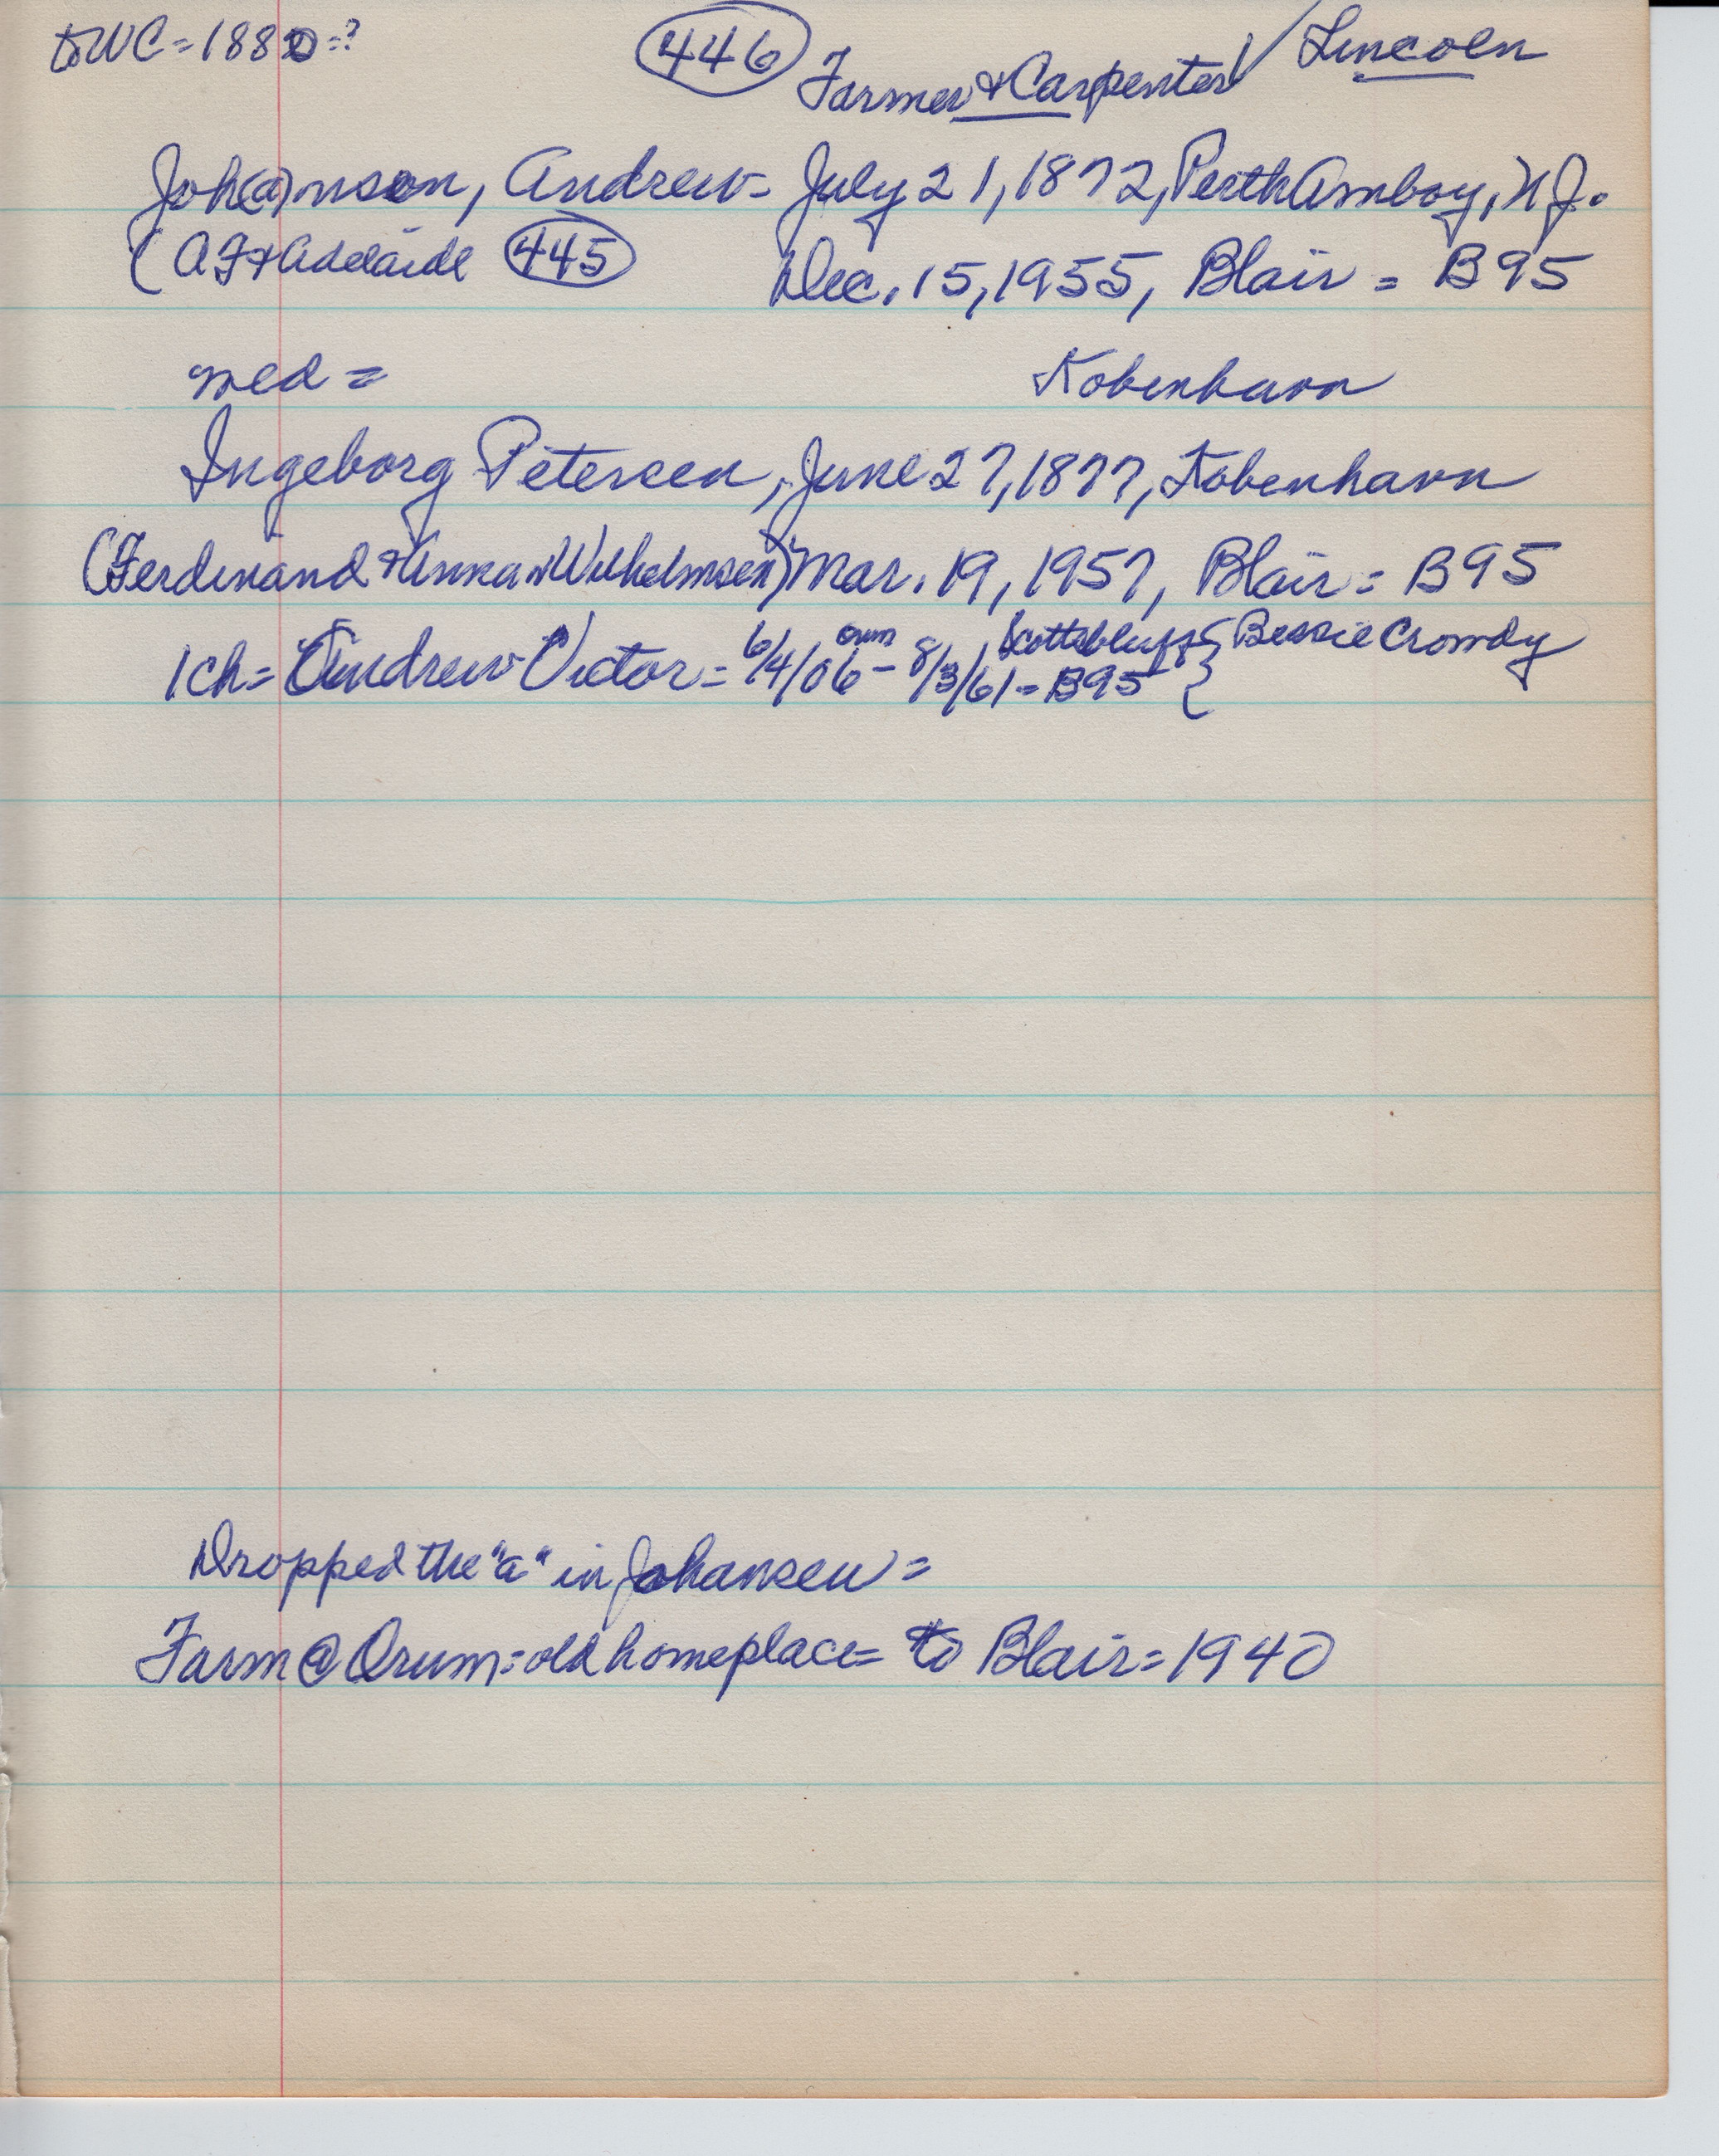 to WC = 1880 = ?
446
Farmer & Carpenter / Lincoln
Joh(a)nson, Andrew = July 21, 1872, Perth Amboy, N.J.
(A F & Adelaide 445 Dec. 15, 1955, Blair = B95
med = Kobenhavn
Ingeborg Petersen, June 27, 1877, Kobenhavn
(Ferdinand & Anna Wilhelmsen) Mar. 19, 1957, Blair = B95
1 ch = Andrew Victor = 6/4/06 Orum - 8/3/61 Scottsbluff = B95 { Bessie Crowdy
Dropped the "a" in Johansen =
Farm @ Orum = old homeplace = to Blair = 1940